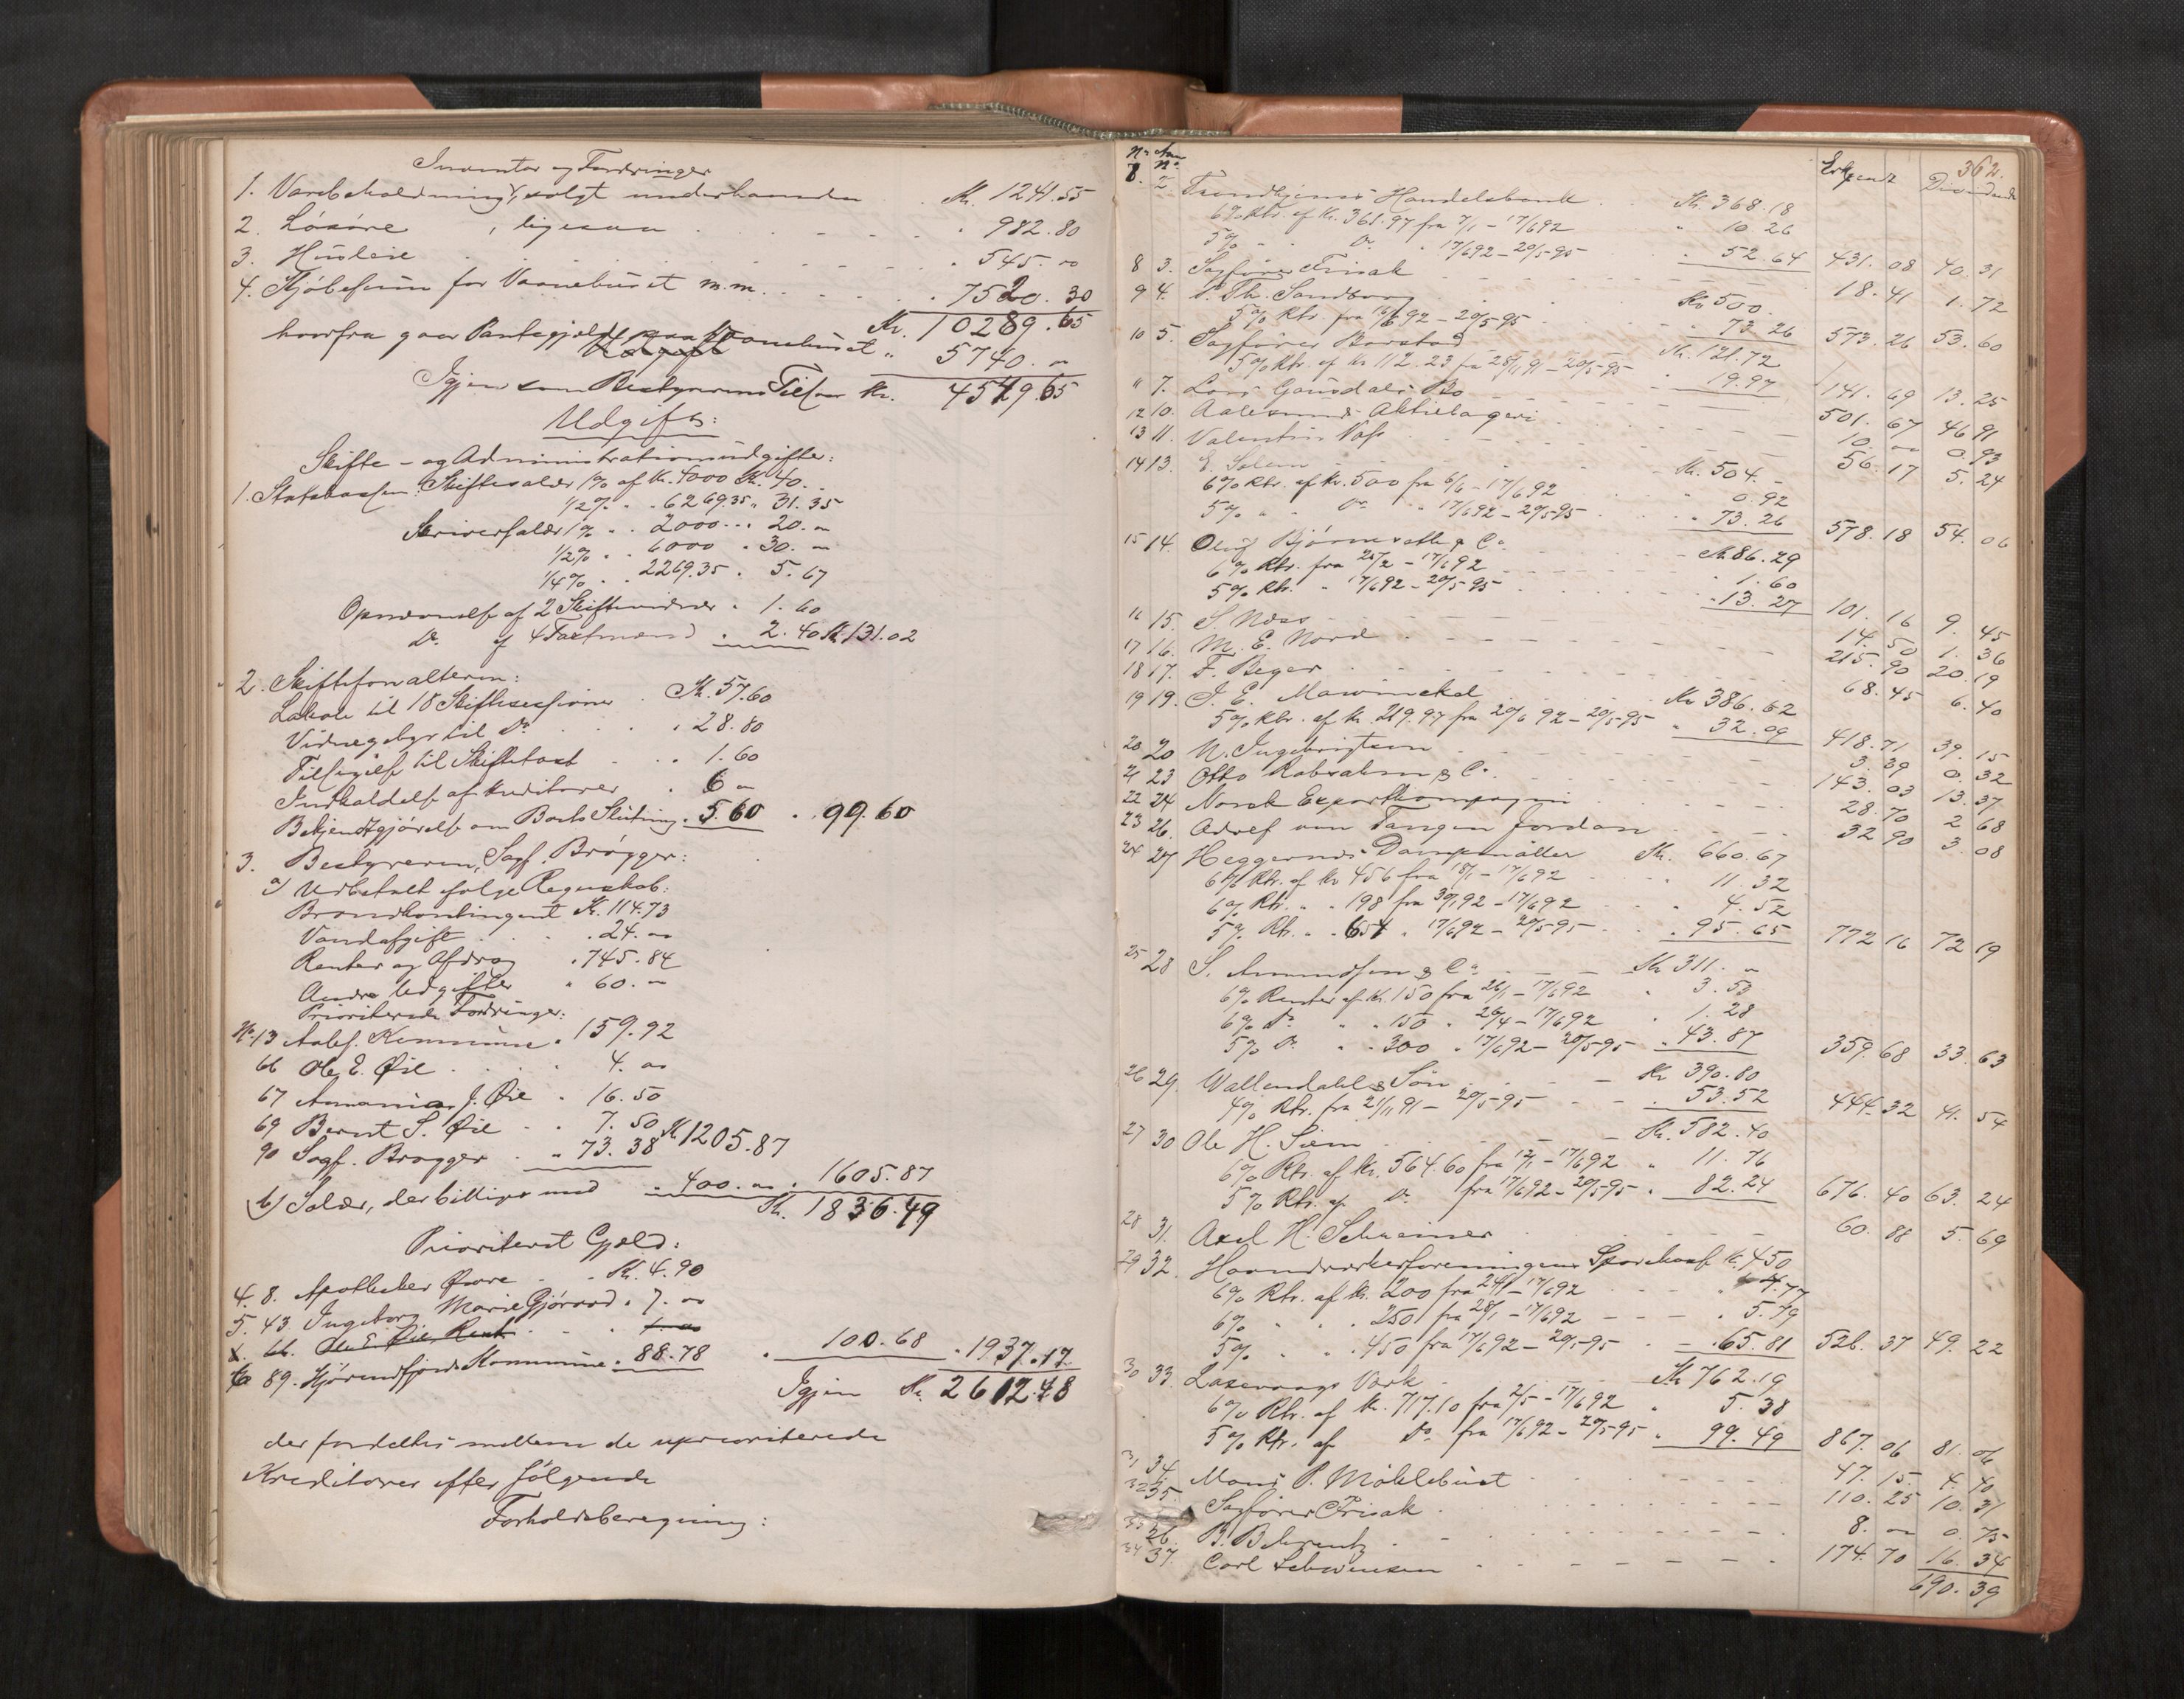 Inventar og Fordringer
1. Varebeholdning, solgt underhaanden . . Kr. 1241.55
2. Løsøre , ligesaa . . . . . " 982.80
3. Husleie . . . . . " 545. "
4. Kjøbesum for Vaanehuset m.m. . . . . . 7520.30
Kr. 10289.65
hvorfra gaar Pantegjæld paa Vaanehuset " 5740. "
Igjen som Bestyrerens Tilsvar Kr. 4549.65
Udgift:
Skifte- og Administrationsudgifter:
1. Statskassen: Skiftesalær 1% af Kr. 4000 Kr. 40. "
1/2% " " 6269.35 " 31.35
Skriversalær 1% " " 2000 " " 20. "
1/2% " " 6000 " 30. "
1/4% " " 2269.35 " 5.67
Opnævnelse af 2 Skiftevidner " 1.60
Do. af 4 Taxtmænd " 2.40 Kr. 131.02
2. Skifteforvalteren:
Lokale til 18 Skiftesessioner . Kr. 57.60
Vidnegebyr til Do . . . " 28.80
Tilsigelse til Skiftetaxt . . " 1.60
Indkaldelse af Kreditorer . " 6 "
Bekjendtgjørelse om Boets Slutning " 5.60 " 99.60
3. Bestyreren, Sagf. Brøgger:
a) Udbetalt ifølge Regnskab:
Brandkontingent Kr. 114.73
Vandafgift . . . " 24. "
Renter og Afdrag " 745.84
Andre Udgifter " 60. "
Prioriterede Fordringer:
No. 13 Aales. Kommune " 159.92
66 Ole E. Øie . . . . 4. "
67 Ananias J. Øie " 16.50
69 Bernt S. Øie . . 7.50
90 Sagf. Brøgger . " 73.38 Kr. 1205.87
b) Salær, der billiges med " 400. " " 1605.87
Kr. 1836.49
Prioriteret Gjæld:
4. 8. Apotheker Øwre . . Kr. 4.90
5. 43. Ingeborg Marie Gjørvad " 7. "
66. Ole E. Øie Rest . . .
6 89. Hjørundfjords Kommune " 88.78 " 100.68 " 1937.17
Igjen Kr. 2612.48
der fordeltes mellem de uprioriterede
Kreditorer efter følgende
Forholdsberegning:
362.
No. Anm. No. Dividende
7. 2 Trondhjems Handelsbank . . Kr. 368.18
6% Rtr. af Kr. 361.97 fra 7/1 - 17/6 92 " 10.26
5% " " Do. " 17/6 92 - 20/5-95 . . 52.64 431.08 40.31
8 3. Sagfører Frisak . . . 18.41 1.72
9 4. P. Th. Sandborg . . . Kr. 500.
5% Rtr. fra 16/6 92 - 20/5-95 . . 73.26 573.26 53.60
10 5. Sagfører Barstad . . Kr. 121.72
5% Rtr. af Kr. 112.23 fra 28/11 91 - 20/5-95 " 19.97 141.69 13.25
11 7. Lars Gausdals Bo . . . 501.67 46.91
12 10. Aalesunds Aktiebageri . . . 10. " 0.93
13 11. Valentin Voss . . . 56.17 5.24
14 13. E. Solem . . . Kr. 504. "
6% Rtr. af Kr. 500 fra 6/6 - 17/6 92 " 0.92
5% " " Do. " 17/6 92 - 20/5-95 . . 73.26 578.18 54.06
15 14. Oluf Bjørnseth & Co. . . . Kr. 86.29
6% Rtr. fra 25/2 - 17/6 92 . . 1.60
5% Rtr. " 17/6 92 - 20/5-95 . . . 13.27 101.16 9.45
16 15. S. Næss . . . 14.50 1.36
17 16. M. E. Nord . . . 215.90 20.19
18 17. F. Beyer . . . 68.45 6.40
19 19. J. E. Mowinckel . . . Kr. 386.62
5% Rtr. af Kr. 219.97 fra 20/6 92 - 20/5-95 " 32.09 418.71 39.15
20 20 N. Ingebrigtsen . . . 3.39 0.32
21 23 Otto Robsahm & Co. . . . 143.03 13.37
22 24 Norsk Exportkompagni . . . 28.70 2.68
23 26. Adolf von Tangen Jordan . . . 32.90 3.08
24 27 Heggernes Dampmøller Kr. 660.67
6% Rtr. af Kr. 456 fra 18/1 - 17/6 92 . . 11.32
6% Rtr. " " 198 fra 30/1 92 - 17/6 92 . . 4.52
5% Rtr. " " 654 " 17/6 92 - 20/5-95 . . 95.65 772.16 72.19
25 28 S. Amundsen & Co. . . . Kr. 311. "
6% Renter af Kr. 150 fra 26/1 - 17/6 92 " 3.53
6% Do. " " 150 " 26/4 - 17/6 92 " 1.28
5% Do. " " 300 " 17/6 92 - 20/5-95 " 43.87 359.68 33.63
26 29. Wallendahl & Søn . . . Kr. 390.80
4% Rtr. fra 21/11 91 - 20/5-95 . . 53.52 444.32 41.54
27 30 Ole H. Siem . . . Kr. 582.40
6% Rtr. af Kr. 564.60 fra 12/1 - 17/6 92 " 11.76
5% Rtr. af Do. fra 17/6 92 - 20/5-95 " 82.24 676.40 63.24
28 31. Axel H. Schreiner . . . 60.88 5.69
29 32. Haandværkerforeningens Sparekasse Kr. 450
6% Rtr. af Kr. 200 fra 24/1 - 17/6 92 . . 4.77
6% " " " 250 fra 28/1 - 17/6 92 . . 5.79
5% " " " 450 fra 17/6 92 - 20/5-95 . . 65.81 526.37 49.22
30 33. Laxevaags Værk . . . Kr. 762.19
6% Rtr. af Kr. 717.10 fra 2/5 - 17/6 92 " 5.38
5% Rtr. af Do. fra 17/6 92 - 20/5-95 " 99.49 867.06 81.06
31 34. Mons P. Møhlebust . . . 47.15 4.40
32 35. Sagfører Frisak . . . 110.25 10.31
33 36. B. Behrentz . . . 8. " 0.75
34 37. Carl Schwensen . . . 174.70 16.34
690.39